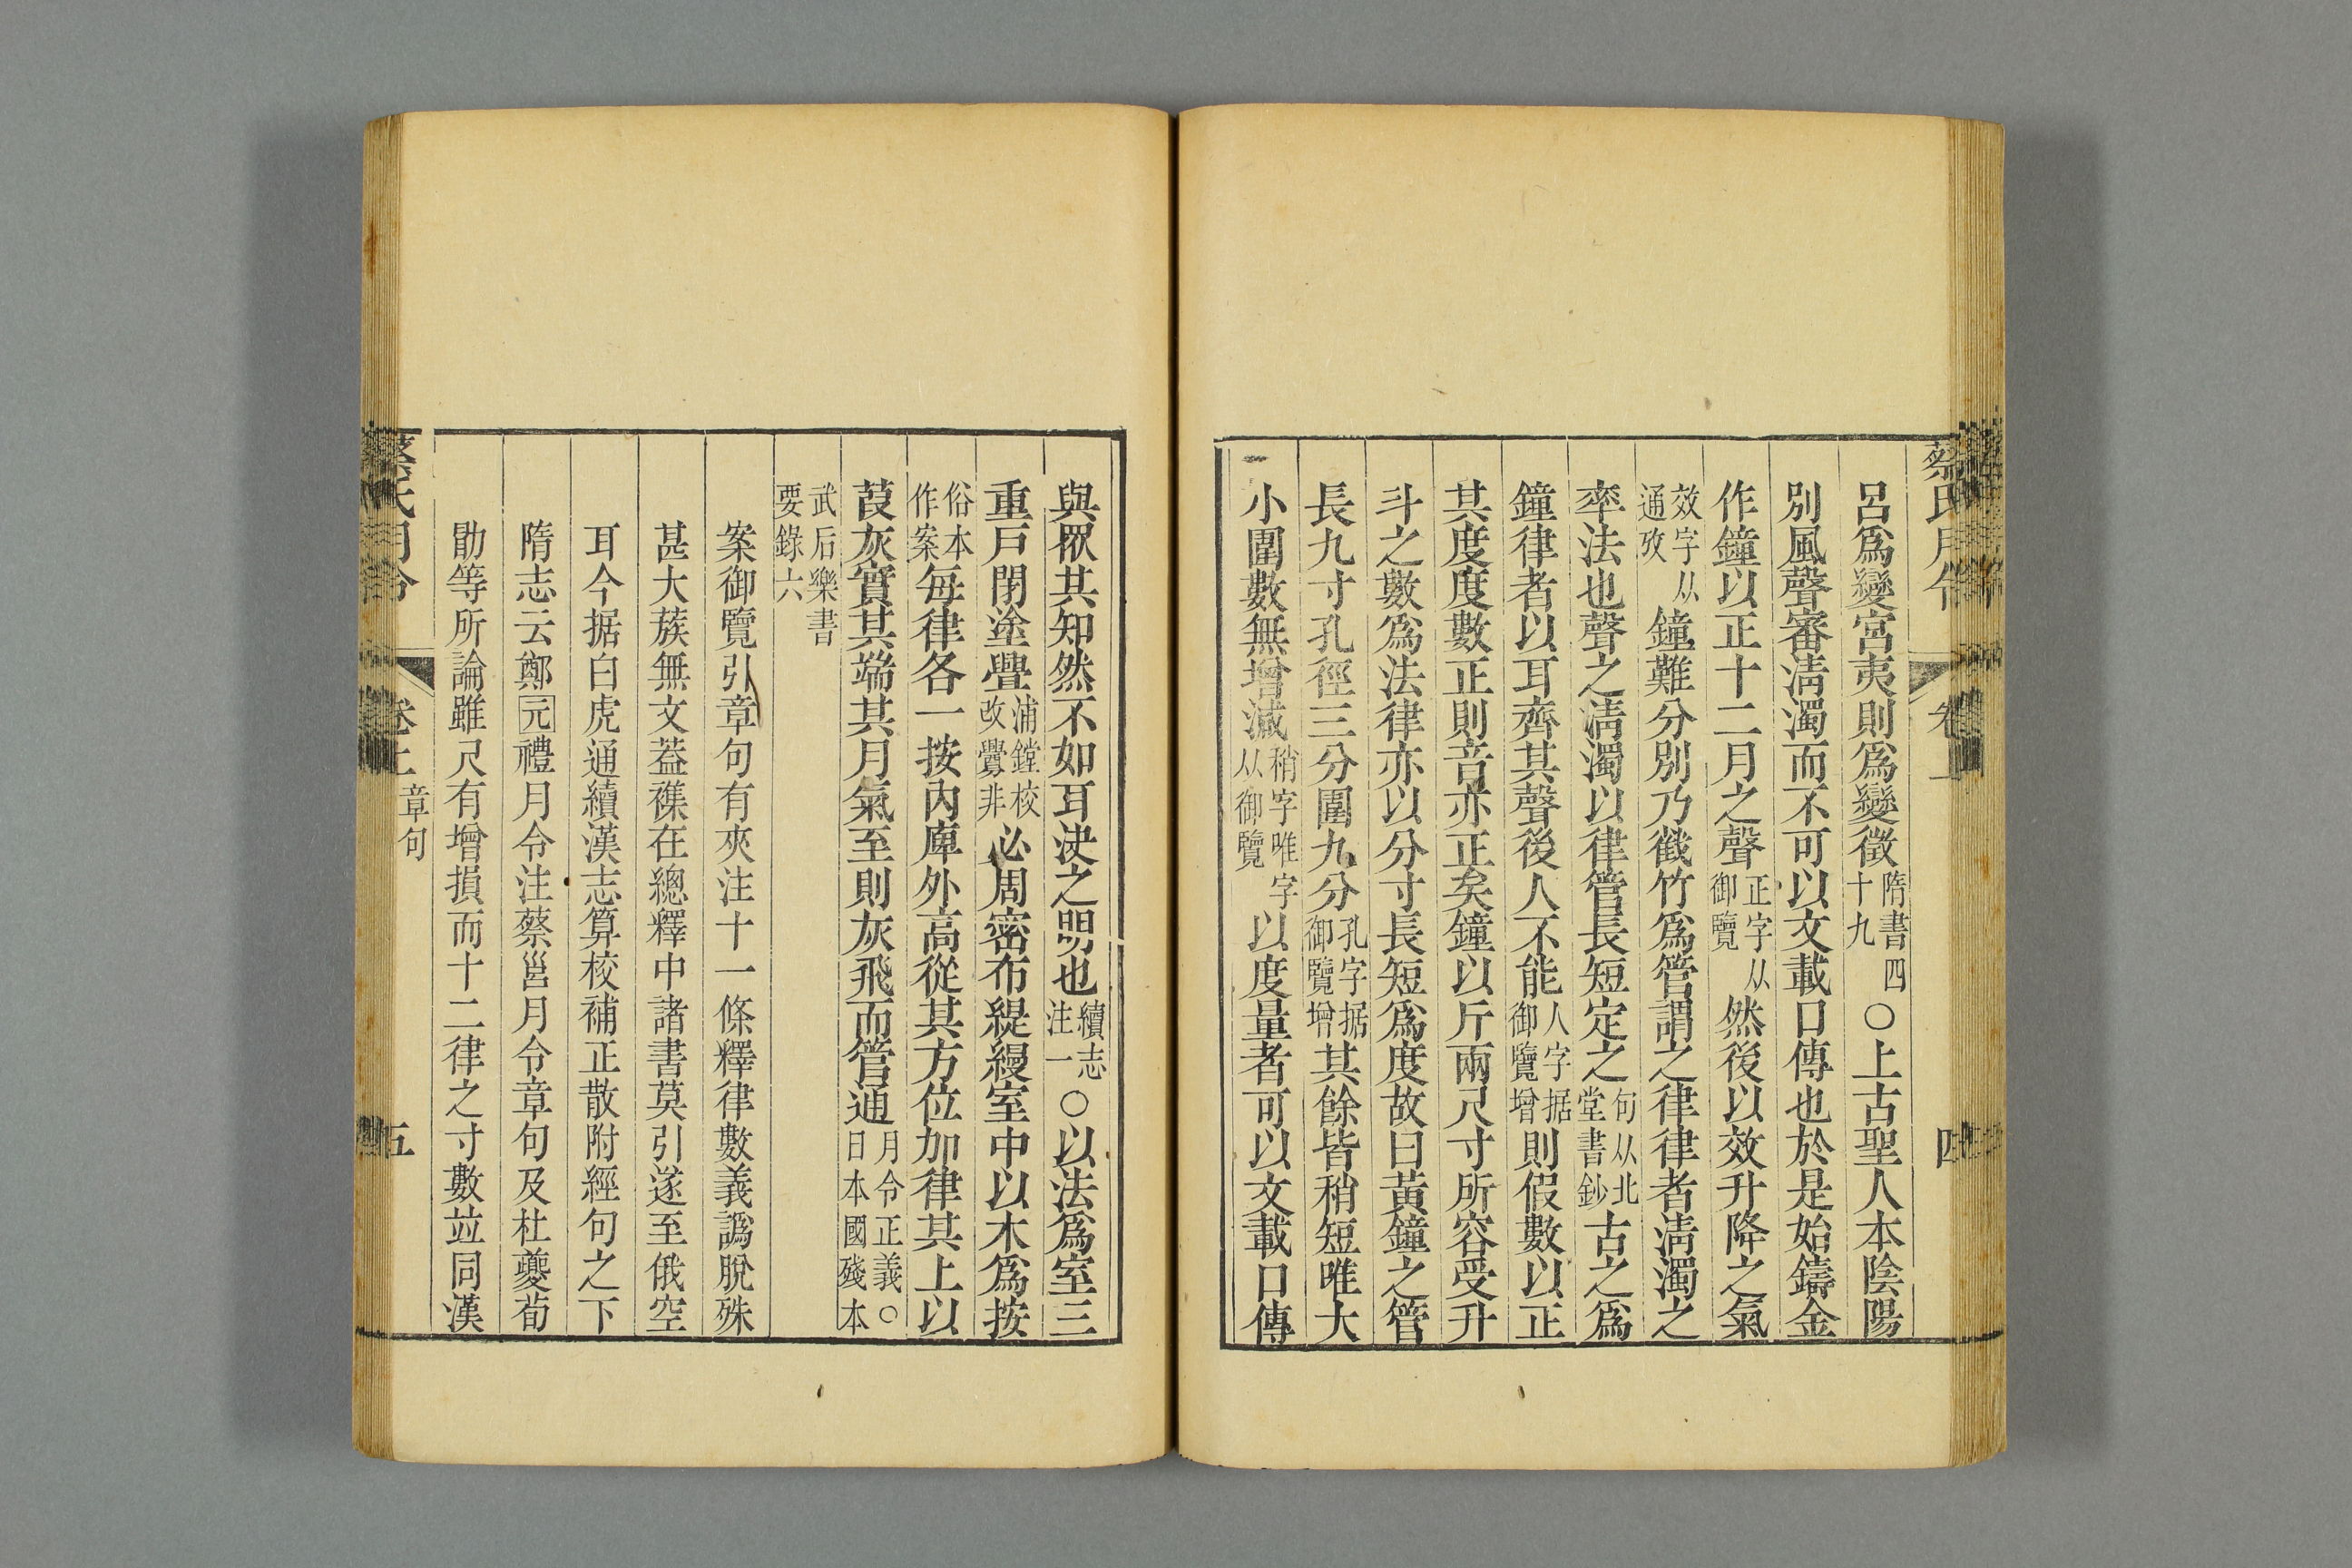 蔡氏月令 卷上 四
呂爲變宮夷則爲變徵隋書四十九○上古聖人本陰陽
別風聲審淸濁而不可以文載口傳也於是始鑄金
作鐘以正十二月之聲正字从御覽然後以效升降之氣
效字从通攷鐘難分別乃截竹爲管謂之律律者淸濁之
率法也聲之淸濁以律管長短定之句从北堂書鈔古之爲
鐘律者以耳齊其聲後人不能人字据御覽增則假數以正
其度度數正則音亦正矣鐘以斤兩尺寸所容受升
斗之數爲法律亦以分寸長短爲度故曰黃鐘之管
長九寸孔徑三分圍九分孔字据御覽增其餘皆稍短唯大
小圍數無增減稍字唯字从御覽以度量者可以文載口傳
與衆其知然不如耳決之明也續志注一○以法爲室三
重戶閉塗釁浦鏜校改釁非必周密布緹縵室中以木爲按
俗本作案每律各一按內庳外高從其方位加律其上以
葭灰實其端其月氣至則灰飛而管通月令正義○日本國殘本
武后樂書要錄六
案御覽引章句有夾注十一條釋律數義譌脫殊
甚大蔟無文葢襍在總釋中諸書莫引遂至俄空
耳今据白虎通續漢志算校補正散附經句之下
隋志云鄭元禮月令注蔡邕月令章句及杜夔荀
勖等所論雖尺有增損而十二律之寸數竝同漢
蔡氏月令 卷上 章句 五